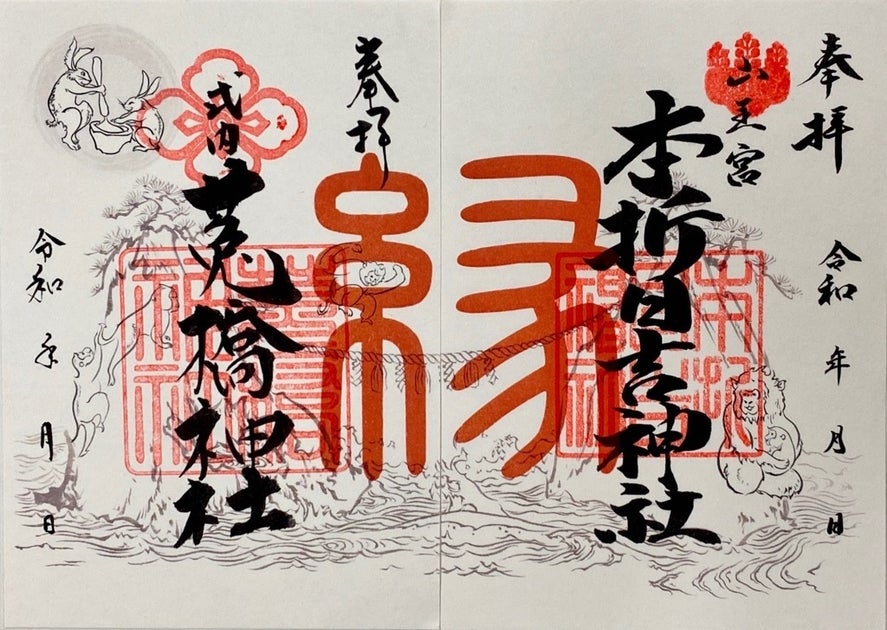 奉拝
令和 年 月 日
山王宮
本折日吉神社
縁
奉拝
式内
莵橋神社
令和 年 月 日